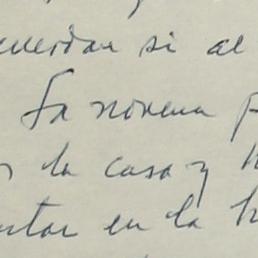 cuerdan si al
La novena p
la casa y h
ntar en la h